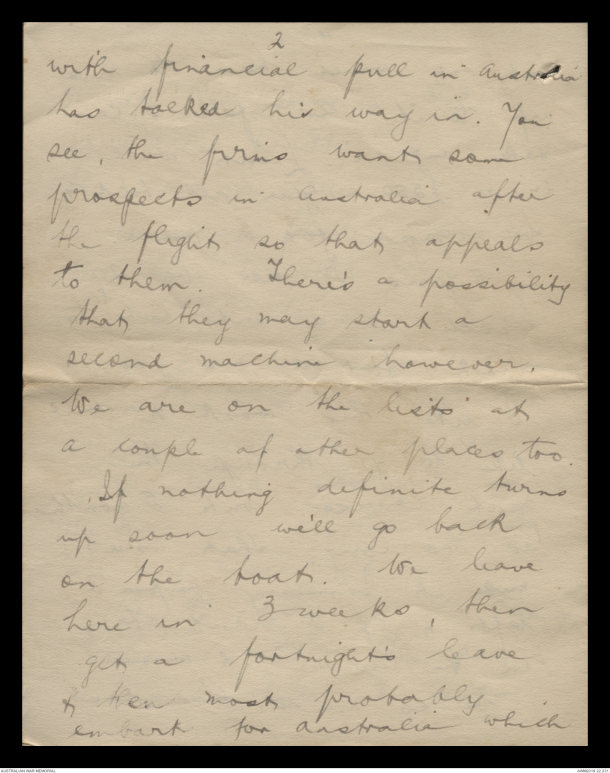 2
with financial pull in Australia
has talked his way in. You
see, the firms want some
prospects in Australia after
the flight so that appeals
to them. There's a possibility
that they may start a
second machine however.
We are on the lists at
a couple of other places too.
If nothing definite turns
up soon we'll go back
on the boat. We leave
here in 3 weeks, then
get a fortnight's leave
& then most probably
embark for Australia which
AUSTRALIAN WAR MEMORIAL